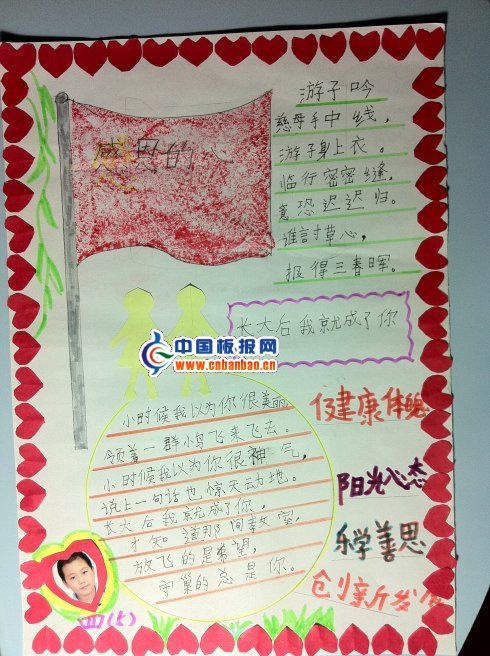 感恩的心
游子吟
慈母手中线，
游子身上衣。
临行密密缝，
意恐迟迟归。
谁言寸草心，
报得三春晖。
长大后我就成了你
中国板报网
www.cnbanbao.cn
小时候我以为你很美丽
领着一群小鸟飞来飞去。
小时候我以为你很神气，
说上一句话也惊天动地。
长大后我就成了你，
才知道那间教室，
放飞的是希望，
守巢的总是你。
健康体
阳光心态
乐学善思
创新发
四(5)